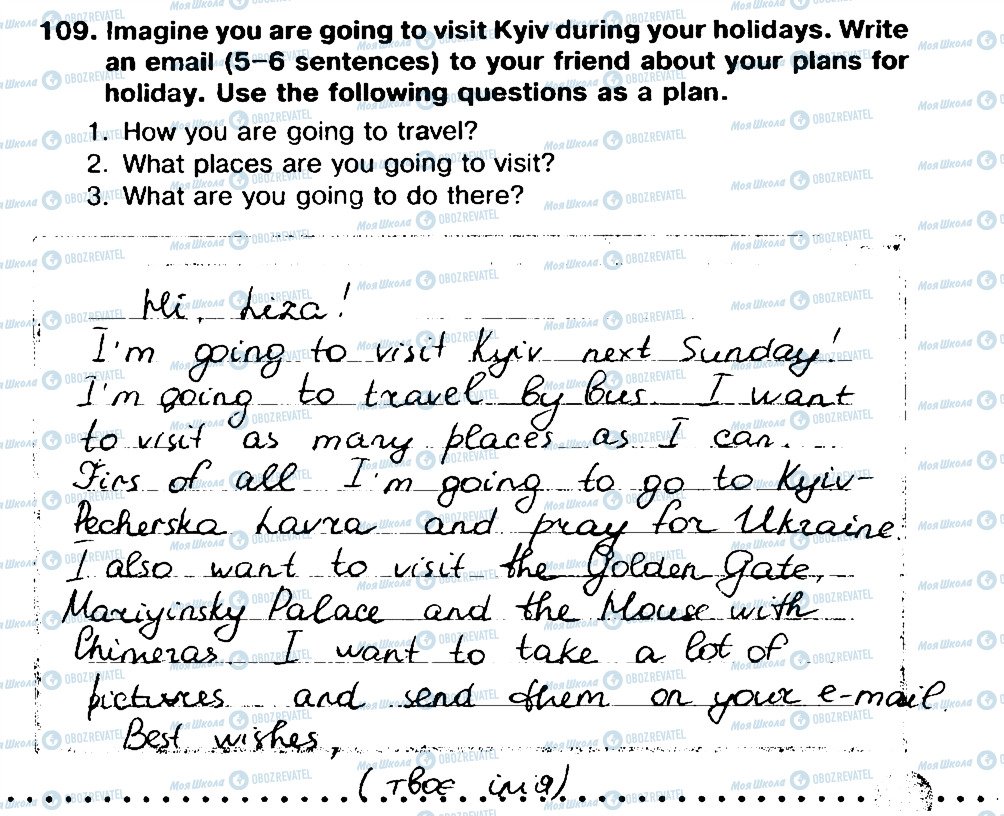 109. Imagine you are going to visit Kyiv during your holidays. Write
an email (5–6 sentences) to your friend about your plans for
holiday. Use the following questions as a plan.
1. How you are going to travel?
2. What places are you going to visit?
3. What are you going to do there?
Hi, Liza!
I'm going to visit Kyiv next Sunday!
I'm going to travel by bus. I want
to visit as many places as I can.
Firs of all I'm going to go to Kyiv-
Pecherska Lavra and pray for Ukraine.
I also want to visit the Golden Gate,
Mariyinsky Palace and the House with
Chimeras. I want to take a lot of
pictures and send them on your e-mail.
Best wishes,
(твоє ім'я)
МояШкола OBOZREVATEL